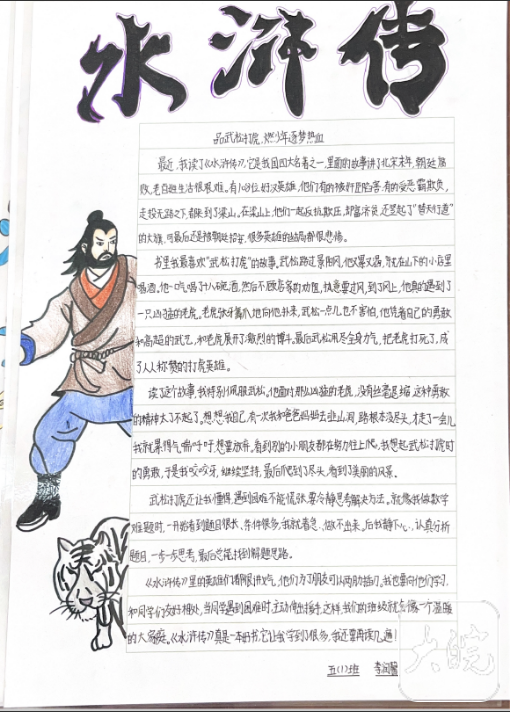 水浒传
品武松打虎,燃少年逐梦热血
最近,我读了《水浒传》,它是我国四大名著之一,里面的故事讲了北宋末年,朝廷腐
败,老百姓生活很艰难。有108位好汉英雄,他们有的被奸臣陷害,有的受恶霸欺负,
走投无路之下,都来到了梁山。在梁山上,他们一起反抗欺压,劫富济贫,还竖起了“替天行道”
的大旗,可最后还是被朝廷招安,很多英雄的结局都很悲惨。
书里我最喜欢“武松打虎”的故事。武松路过景阳冈,他又累又渴,就在山下的小店里
喝酒。他一口气喝了十八碗酒,然后不顾店家的劝阻,执意要过冈,到了冈上,他真的遇到了
一只凶猛的老虎。老虎张牙舞爪地向他扑来,武松一点儿也不害怕,他凭着自己的勇敢
和高超的武艺,和老虎展开了激烈的博斗。最后武松用尽全身力气,把老虎打死了,成
了人人称赞的打虎英雄。
读了这个故事,我特别佩服武松。他面对那么凶猛的老虎,没有丝毫退缩,这种勇敢
的精神太了不起了。想想我自己,有一次我和爸爸妈妈去爬山,台阶根本没尽头,才走了一会儿
我就累得气喘吁吁,想要放弃,看到别的小朋友都在努力往上爬,我想起武松打虎时
的勇敢,于是我咬咬牙,继续坚持,最后爬到了尽头,看到了美丽的风景。
武松打虎还让我懂得,遇到困难不能慌张,要冷静思考解决方法。就像我做数学
难题时,一开始看到题目很长、条件很多,我就着急,做不出来。后我静下心,认真分析
题目,一步一步思考,最后总能找到解题思路。
《水浒传》里的英雄们都很讲义气,他们为了朋友可以两肋插刀。我也要向他们学习
和同学们友好相处,当同学遇到困难时,主动伸出援手,这样,我们的班级就会像一个温暖
的大家庭。《水浒传》真是一本好书,它让我学到了很多,我还要再读几遍!
五(1)班 李润馨
大皖